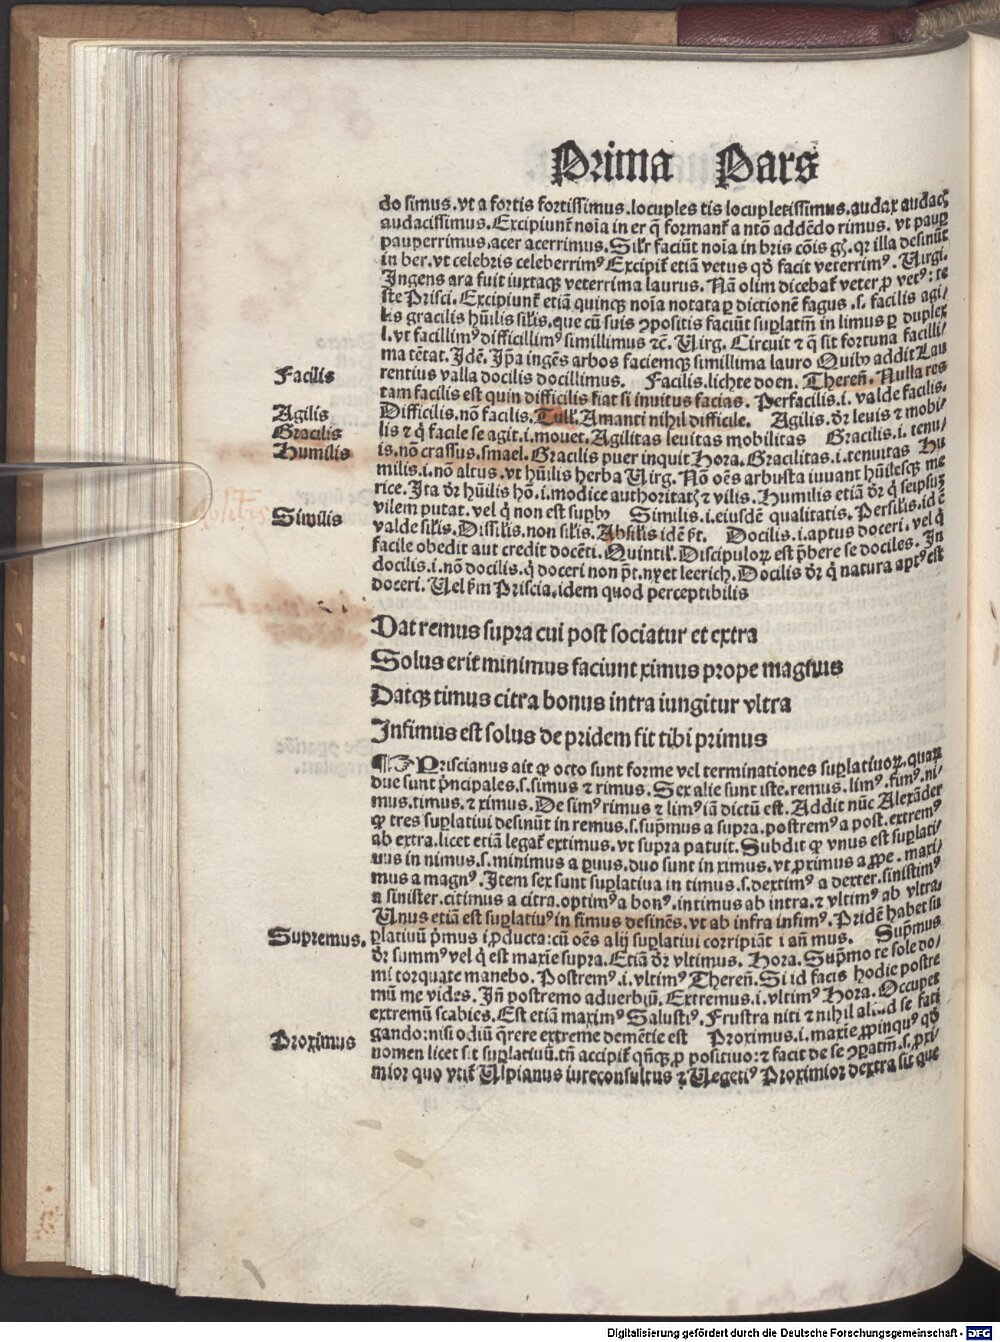 Prima Pars
do simus. vt a fortis fortissimus. locuples tis locupletissimus. audax audacꝭ
audacissimus. Excipiunt̃ noĩa in er q̃ formant̃ a ntõ addẽdo rimus. vt paup̲
pauperrimus. acer acerrimus. Sil̃r faciũt noĩa in bris cõis gñ̃. qr illa desinũt
in ber. vt celebris celeberrimꝰ Excipit̃ etiã vetus qď facit veterrimꝰ. Uirgi.
Ingens ara fuit iuxtaqꝫ veterrima laurus. Nã olim dicebat̃ veter ꝓ vetꝰ: te
ste Prisci. Excipiunt̃ etiã quinqꝫ noĩa notata ꝑ dictionẽ fagus .s. facilis agi/
lis gracilis hũilis sil̃is. que cũ suis ꝯpositis faciũt suꝑlatĩu in limus ꝑ duplex
l. vt facillimꝰ difficillimꝰ simillimus ⁊č. Uirg. Circuit ⁊ q̃ sit fortuna facilli/
ma tẽtat. Idẽ. Ip̃a ingẽs arbos faciemqꝫ simillima lauro Quibꝰ addit Lau
rentius valla docilis docillimus. Facilis. lichte doen. Thereñ. Nulla res
tam facilis est quin difficilis fiat si inuitus facias. Perfacilis .i. valde facilis.
Difficilis. nõ facilis. Tull̃. Amanti nihil difficile. Agilis. dr̃ leuis ⁊ mobi/
lis ⁊ q̃ facile se agit .i. mouet. Agilitas leuitas mobilitas Gracilis .i. tenu/
is. nõ crassus. smael. Gracilis puer inquit Hora. Gracilitas .i. tenuitas Hu
milis .i. nõ altus. vt hũilis herba Uirg. Nõ oẽs arbusta iuuant hũilesqꝫ me
rice. Ita dr̃ hũilis hõ .i. modice authoritatꝭ ⁊ vilis. Humilis etiã dr̃ q̃ seipsuꝫ
vilem putat. vel q̃ non est supbꝰ Similis .i. eiusdẽ qualitatis. Persilis. idẽ
valde sil̃is. Dissil̃is. non sil̃is. Absil̃is idẽ p̃t. Docilis .i. aptus doceri. vel q̃
facile obedit aut credit docẽti. Quintil̃. Discipuloꝝ est p̃bere se dociles. In
docilis .i. nõ docilis. q̃ doceri non p̃t. nyet leerich. Docilis dr̃ q̃ natura aptꝰ est
doceri. Uel ẜm Priscia. idem quod perceptibilis
Dat remus supra cui post sociatur et extra
Solus erit minimus faciunt ximus prope magnus
Datqꝫ timus citra bonus intra iungitur vltra
Infimus est solus de pridem fit tibi primus
Priscianus ait ꝙ octo sunt forme vel terminationes suꝑlatiuoꝝ. quaꝝ
due sunt p̃ncipales .s. simus ⁊ rimus. Sex alie sunt iste. remus. limꝰ. fimꝰ. ni/
mus. timus. ⁊ ximus. De simꝰ rimus ⁊ limꝰ iã dictũ est. Addit nũc Alexãder
ꝙ tres suꝑlatiui desinũt in remus .s. sup̃mus a supra. postremꝰ a post. extremꝰ
ab extra. licet etiã legat̃ extimus. vt supra patuit. Subdit ꝙ vnus est suꝑlati/
uus in nimus .s. minimus a ꝑuus. duo sunt in ximus. vt ꝓximus a ꝓpe. maxi/
mus a magnꝰ. Item sex sunt suꝑlatiua in timus .s. dextimꝰ a dexter. sinistimꝰ
a sinister. citimus a citra. optimꝰ a bonꝰ. intimus ab intra. ⁊ vltimꝰ ab vltra.
Unus etiã est suꝑlatiuꝰ in fimus desinẽs. vt ab infra infimꝰ. Pridẽ habet su
ꝑlatiuũ p̃mus i ꝓducta: cũ oẽs alij suꝑlatiui corripiãt i añ mus. Sup̃mus
dr̃ summꝰ vel q̃ est maxĩe supra. Etiã dr̃ vltimus. Hora. Sup̃mo te sole do/
mi torquate manebo. Postremꝰ .i. vltimꝰ Thereñ. Si id facis hodie postre
mũ me vides. Iñ postremo aduerbiũ. Extremus .i. vltimꝰ Hora. Occupet
extremũ scabies. Est etiã maximꝰ Salustiꝰ. Frustra niti ⁊ nihil aliud se fati
gando: nisi odiũ q̃rere extreme demẽtie est Proximus .i. maxĩe ꝓpinquꝰ qď
nomen licet sit suꝑlatiuũ. tñ accipit̃ qñqꝫ ꝓ positiuo: ⁊ facit de se ꝯꝑatĩu .s. ꝓxi/
mior quo vtit̃ Ulpianus iureconsultus ⁊ Uegetiꝰ Proximior dextra sit que
Facilis
Agilis
Gracilis
Humilis
Similis
Supremus.
Proximus
Digitalisierung gefördert durch die Deutsche Forschungsgemeinschaft - DFG